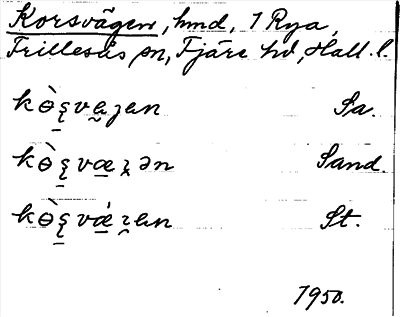 Korsvägen, hmd, 1 Rya,
Frillesås sn, Fjäre hd, Hall. l.
kɵ̀ʂvaʒan Sa.
kɵ̀ʂvæʒən Sand.
kɵ̀ʂvǽʒan St.
1950.